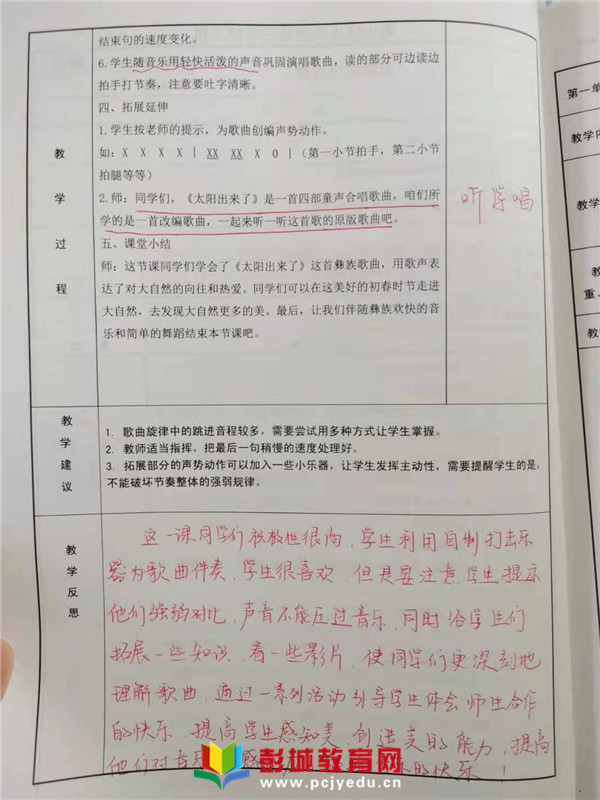 结束句的速度变化。
6.学生随音乐用轻快活泼的声音巩固演唱歌曲，读的部分可边读边
拍手打节奏，注意要吐字清晰。
四、拓展延伸
1.学生按老师的提示，为歌曲创编声势动作。
如：X X X X | XX XX X 0 |（第一小节拍手，第二小节
拍腿等等）
2.师：同学们，《太阳出来了》是一首四部童声合唱歌曲，咱们所
学的是一首改编歌曲，一起来听一听这首歌的原版歌曲吧。
五、课堂小结
师：这节课同学们学会了《太阳出来了》这首彝族歌曲，用歌声表
达了对大自然的向往和热爱。同学们可以在这美好的初春时节走进
大自然，去发现大自然更多的美。最后，让我们伴随彝族欢快的音
乐和简单的舞蹈结束本节课吧。
教
学
过
程
听学唱
教
学
建
议
1. 歌曲旋律中的跳进音程较多，需要尝试用多种方式让学生掌握。
2. 教师适当指挥，把最后一句稍慢的速度处理好。
3. 拓展部分的声势动作可以加入一些小乐器，让学生发挥主动性，需要提醒学生的是，
不能破坏节奏整体的强弱规律。
教
学
反
思
这一课同学们积极性很高，学生利用自制打击乐
器为歌曲伴奏，学生很喜欢，但是要注意，学生提示
他们强弱对比，声音不能压过音乐，同时给学生们
拓展一些知识，看一些影片，使同学们更深刻地
理解歌曲，通过一系列活动引导学生体会师生合作
的快乐，提高学生感知美、创造美的能力，提高
他们对音乐 感 的快乐！
第一单
教学内
教学
教
重、
教
彭城教育网
www.pcjyedu.cn